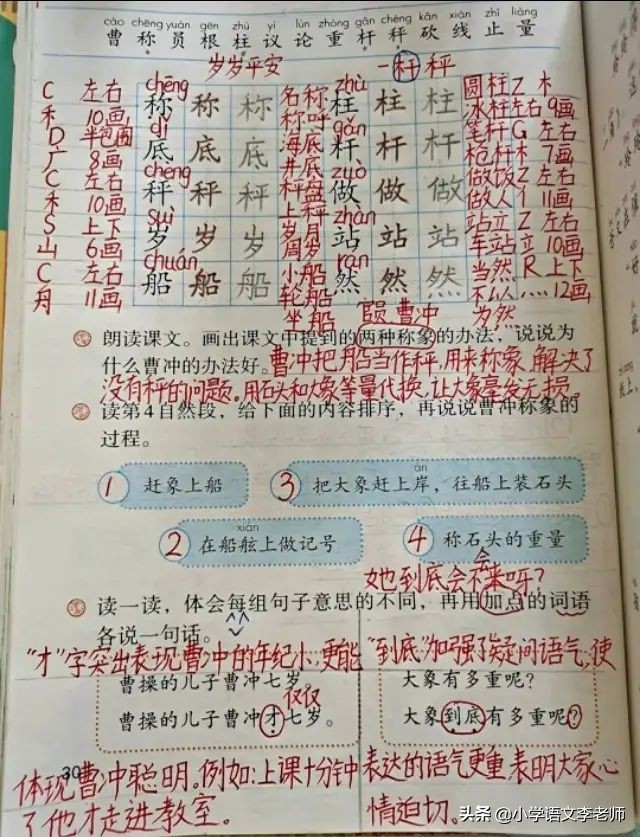 cáo chēng yuán gēn zhù yì lùn zhòng gǎn chèng kǎn xiàn zhǐ liàng
曹 称 员 根 柱 议 论 重 杆 秤 砍 线 止 量
岁岁平安 一杆秤
C 左右 chēng 称 称 称 名称 zhù 柱 柱 柱 圆柱 Z 木
禾 10画 称呼 冰柱 左右 9画
D 半包围 dǐ 底 底 底 海底 gǎn 杆 杆 杆 笔杆 G 左右
广 8画 井底 枪杆 木 7画
C 左右 chèng 秤 秤 秤 秤盘 zuò 做 做 做 做饭 Z 左右
禾 10画 上秤 做人 亻 11画
S 上下 suì 岁 岁 岁 岁月 zhàn 站 站 站 站立 Z 左右
山 6画 周岁 车站 立 10画
C 左右 chuán 船 船 船 小船 rán 然 然 然 当然 R 上下
舟 11画 轮船 不以 灬 12画
坐船 官员 曹冲 为然
朗读课文。画出课文中提到的两种称象的办法，说说为
什么曹冲的办法好。曹冲把船当作秤，用来称象，解决了
没有秤的问题。用石头和大象等量代换，让大象毫发无损。
读第4自然段，给下面的内容排序，再说说曹冲称象的
过程。
1 赶象上船
àn
3 把大象赶上岸，往船上装石头
xián
2 在船舷上做记号
4 称石头的重量
她到底会不会来呀？
读一读，体会每组句子意思的不同，再用加点的词语
各说一句话。
“才”字突出表现曹冲的年纪小，更能
“到底”加强了疑问语气，使
曹操的儿子曹冲七岁。
仅仅
曹操的儿子曹冲才七岁。
大象有多重呢？
大象到底有多重呢？
30
体现曹冲聪明。例如：上课十分钟
了他才走进教室。
表达的语气更重，表明大家心
情迫切。
头条 @小学语文李老师